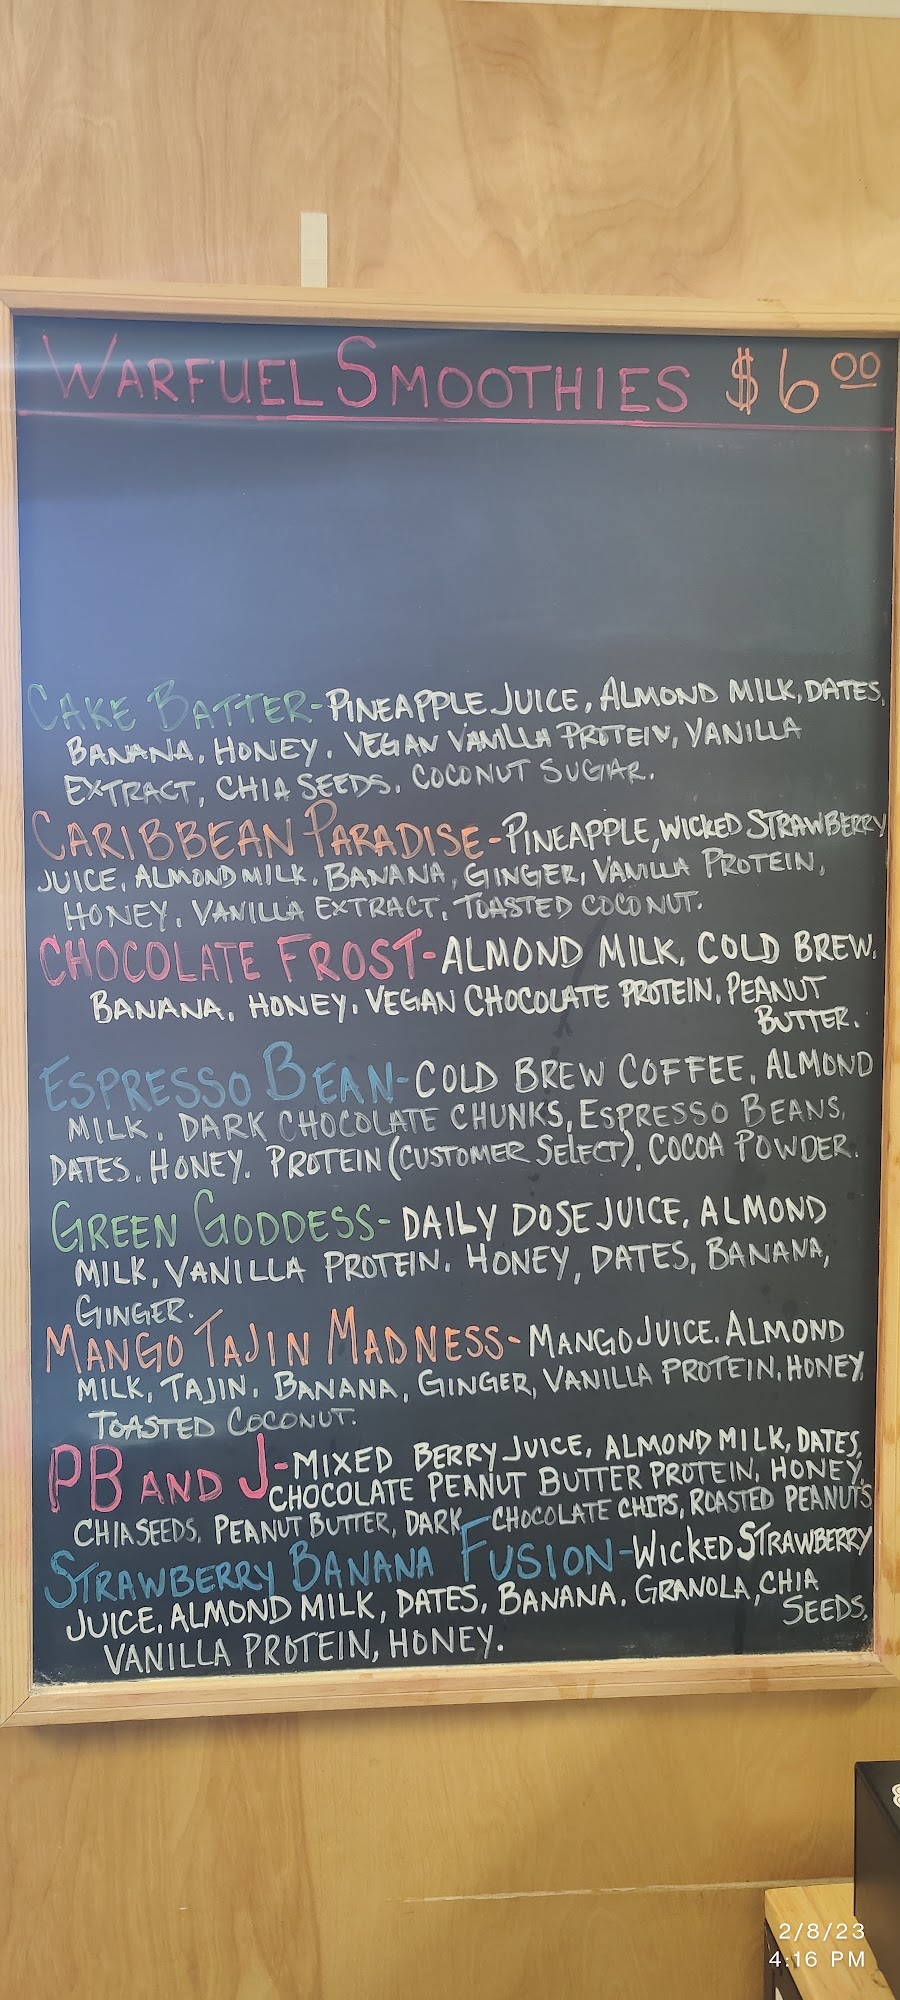 WARFUEL SMOOTHIES $6 00
CAKE BATTER-PINEAPPLE JUICE, ALMOND MILK, DATES,
BANANA, HONEY, VEGAN VANILLA PROTEIN, VANILLA
EXTRACT, CHIA SEEDS, COCONUT SUGAR.
CARIBBEAN PARADISE-PINEAPPLE, WICKED STRAWBERRY
JUICE, ALMOND MILK, BANANA, GINGER, VANILLA PROTEIN,
HONEY, VANILLA EXTRACT, TOASTED COCONUT.
CHOCOLATE FROST-ALMOND MILK, COLD BREW,
BANANA, HONEY, VEGAN CHOCOLATE PROTEIN, PEANUT
BUTTER.
ESPRESSO BEAN-COLD BREW COFFEE, ALMOND
MILK, DARK CHOCOLATE CHUNKS, ESPRESSO BEANS,
DATES, HONEY, PROTEIN (CUSTOMER SELECT), COCOA POWDER.
GREEN GODDESS-DAILY DOSE JUICE, ALMOND
MILK, VANILLA PROTEIN, HONEY, DATES, BANANA,
GINGER.
MANGO TAJIN MADNESS-MANGO JUICE, ALMOND
MILK, TAJIN, BANANA, GINGER, VANILLA PROTEIN, HONEY,
TOASTED COCONUT.
PB AND J-MIXED BERRY JUICE, ALMOND MILK, DATES,
CHOCOLATE PEANUT BUTTER PROTEIN, HONEY,
CHIA SEEDS, PEANUT BUTTER, DARK CHOCOLATE CHIPS, ROASTED PEANUTS
STRAWBERRY BANANA FUSION-WICKED STRAWBERRY
JUICE, ALMOND MILK, DATES, BANANA, GRANOLA, CHIA
SEEDS,
VANILLA PROTEIN, HONEY.
2/8/23
4:16 PM